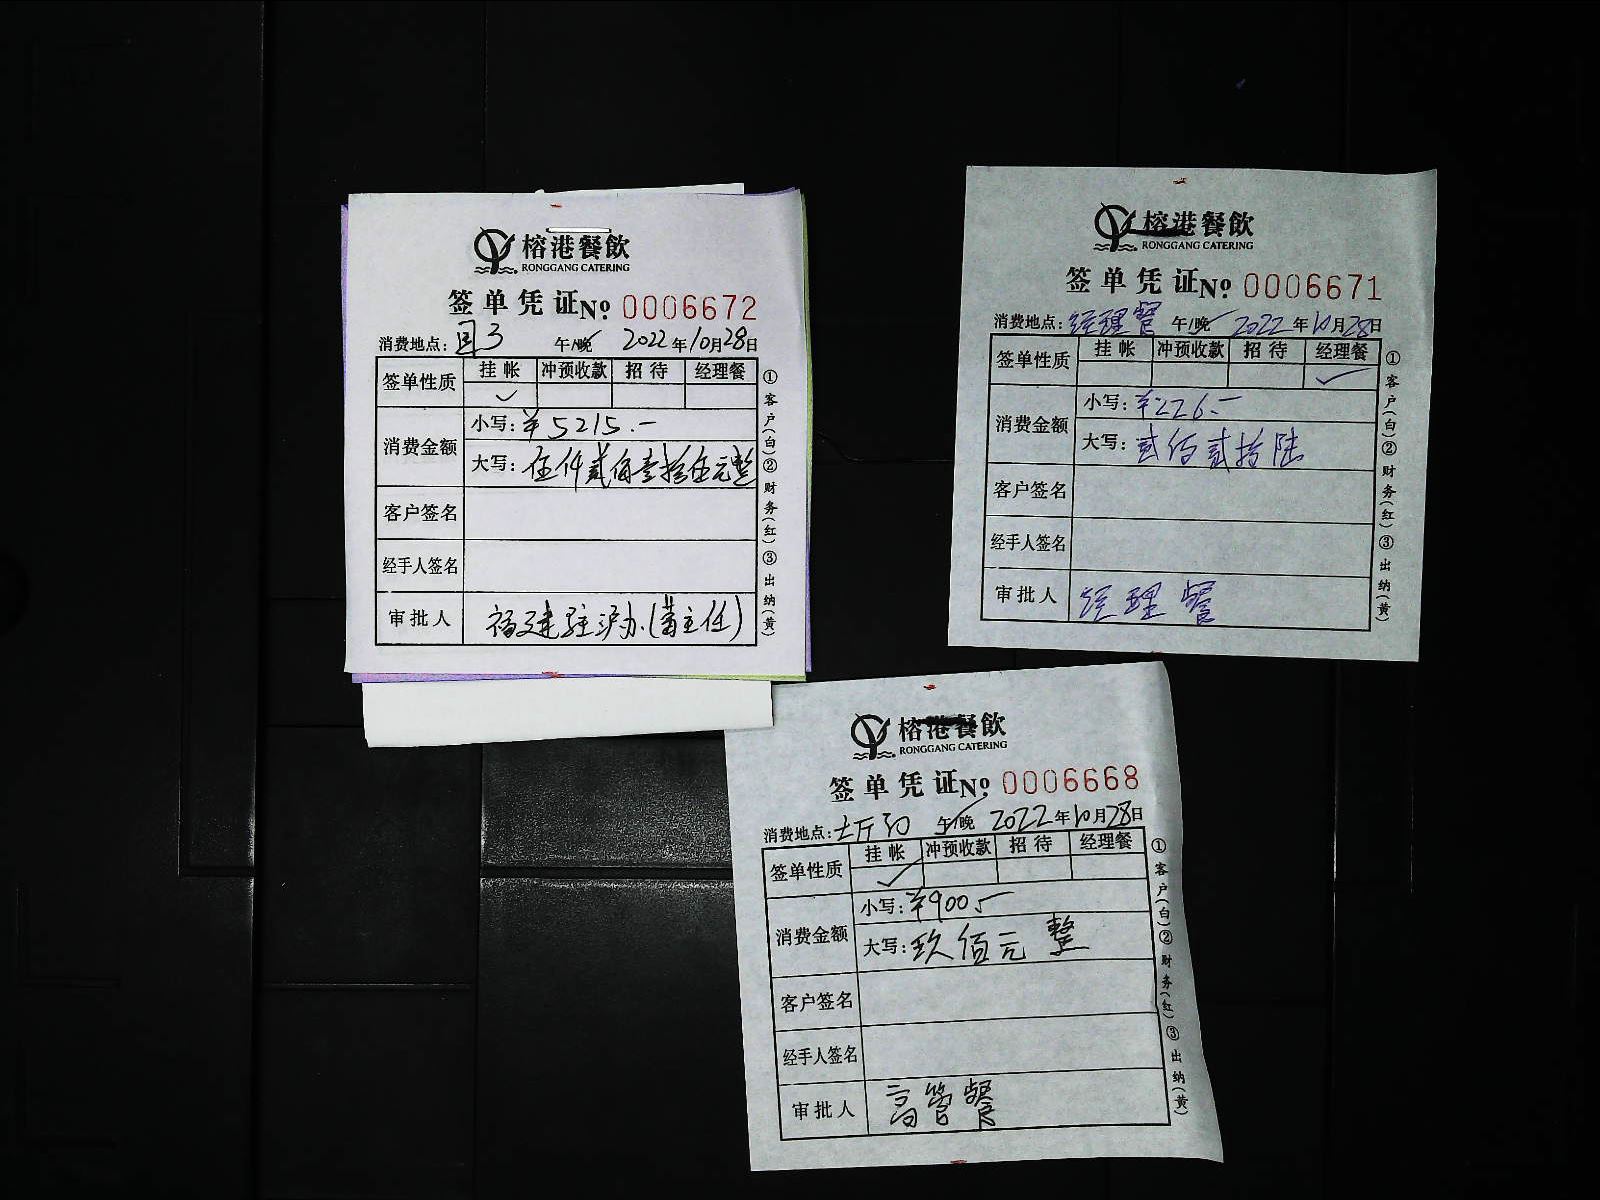 榕港餐飲
RONGGANG CATERING
签单凭证№ 0006672
消费地点: 午/晚 2022年10月28日
签单性质 挂帐 冲预收款 招待 经理餐
✓
消费金额 小写: ¥5215.—
大写: 伍仟贰佰壹拾伍元整
客户签名
经手人签名
审批人 福建驻沪办(黄主任)
①客户(白)②财务(红)③出纳(黄)
榕港餐飲
RONGGANG CATERING
签单凭证№ 0006671
消费地点: 经理餐 午/晚 2022年10月28日
签单性质 挂帐 冲预收款 招待 经理餐
✓
消费金额 小写: ¥226.—
大写: 贰佰贰拾陆
客户签名
经手人签名
审批人 经理餐
①客户(白)②财务(红)③出纳(黄)
榕港餐飲
RONGGANG CATERING
签单凭证№ 0006668
消费地点: 午/晚 2022年10月28日
签单性质 挂帐 冲预收款 招待 经理餐
✓
消费金额 小写: ¥900.—
大写: 玖佰元整
客户签名
经手人签名
审批人 高管餐
①客户(白)②财务(红)③出纳(黄)